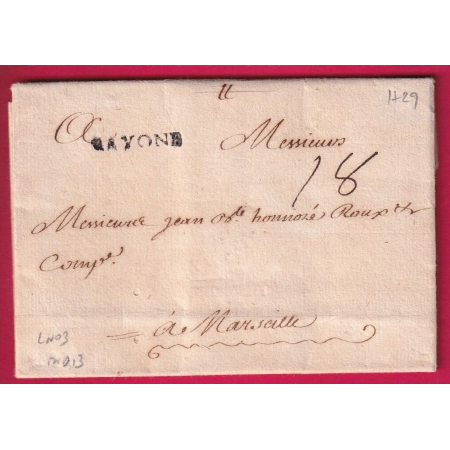 1729
A
BAYONE
Messieurs
18
Messieurs jean Bte honnoré Roux et
Compe.
à Marseille
LN03